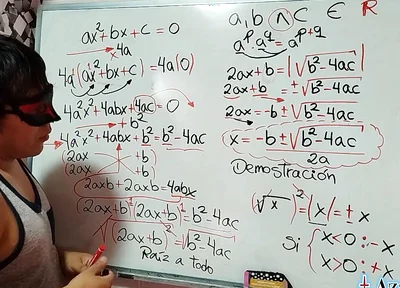 ax² + bx + c = 0
x 4a
4a(ax² + bx + c) = 4a(0)
4a²x² + 4abx + 4ac = 0
+ b²
4a²x² + 4abx + b² = b² - 4ac
(2ax + b)
(2ax + b)
2axb + 2axb = 4abx
(2ax + b)(2ax + b) = b² - 4ac
√(2ax + b)² = √b² - 4ac
Raíz a todo
a, b ∧ C ∈ R
aᵖ · a^q = a^p+q
2ax + b = |√b² - 4ac|
2ax + b = ± √b² - 4ac
2ax = -b ± √b² - 4ac
x = -b ± √b² - 4ac
2a
Demostración
(√x)² = |x| = ± x
Si { x < 0 : - x
x > 0 : + x